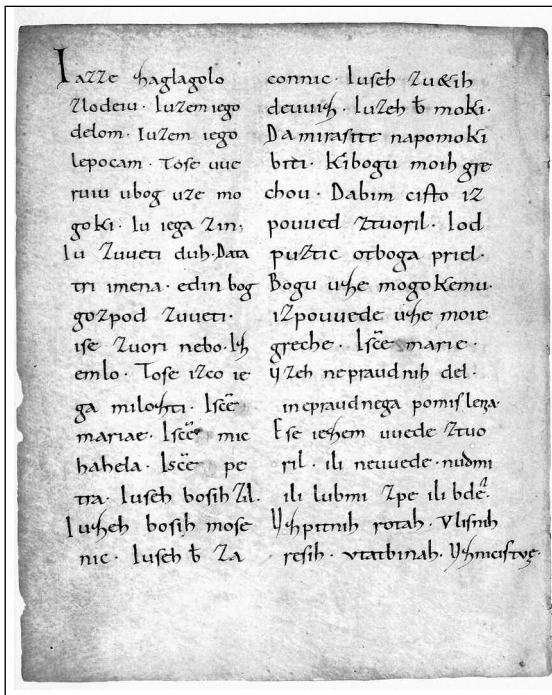 Iazze zaglagolo
zlodeiu · Iuzem iego
delom · Iuzem iego
lepocam · Tose uue
ruiu ubog uze mo
goki · Iu iega zin,
Iu zuueti duh · Data
tri imena · edin bog
gozpod zuueti ·
ise zuori nebo · Iz
emlo · Tose izco ie
ga milozti · Iscē
mariae · Iscē mic
hahela · Iscē pe
tra · Iuseh bosih zil ·
Iuzeh bosih mose
nic · Iuseh b̄ za
connic · Iuseh zu&ih
deuuiz · Iuzeh b̄ moki ·
Da mirasite napomoki
biti · Kibogu moih gre
chou · Dabim cisto iz
pouued ztuoril · Iod
puztic otboga priel ·
Bogu uze mogokemu ·
izpouuede uze moie
greche · Iscē marie ·
Vzeh nepraudnih del ·
inepraudnega pomisleza ·
Ese iezem uuede ztuo
ril · ili neuuede · nudmi
ili lubmi zpe ili bde ·
Vzpitnih rotah · Vlisnih
resih · vtatbinah · Vznicistue ·